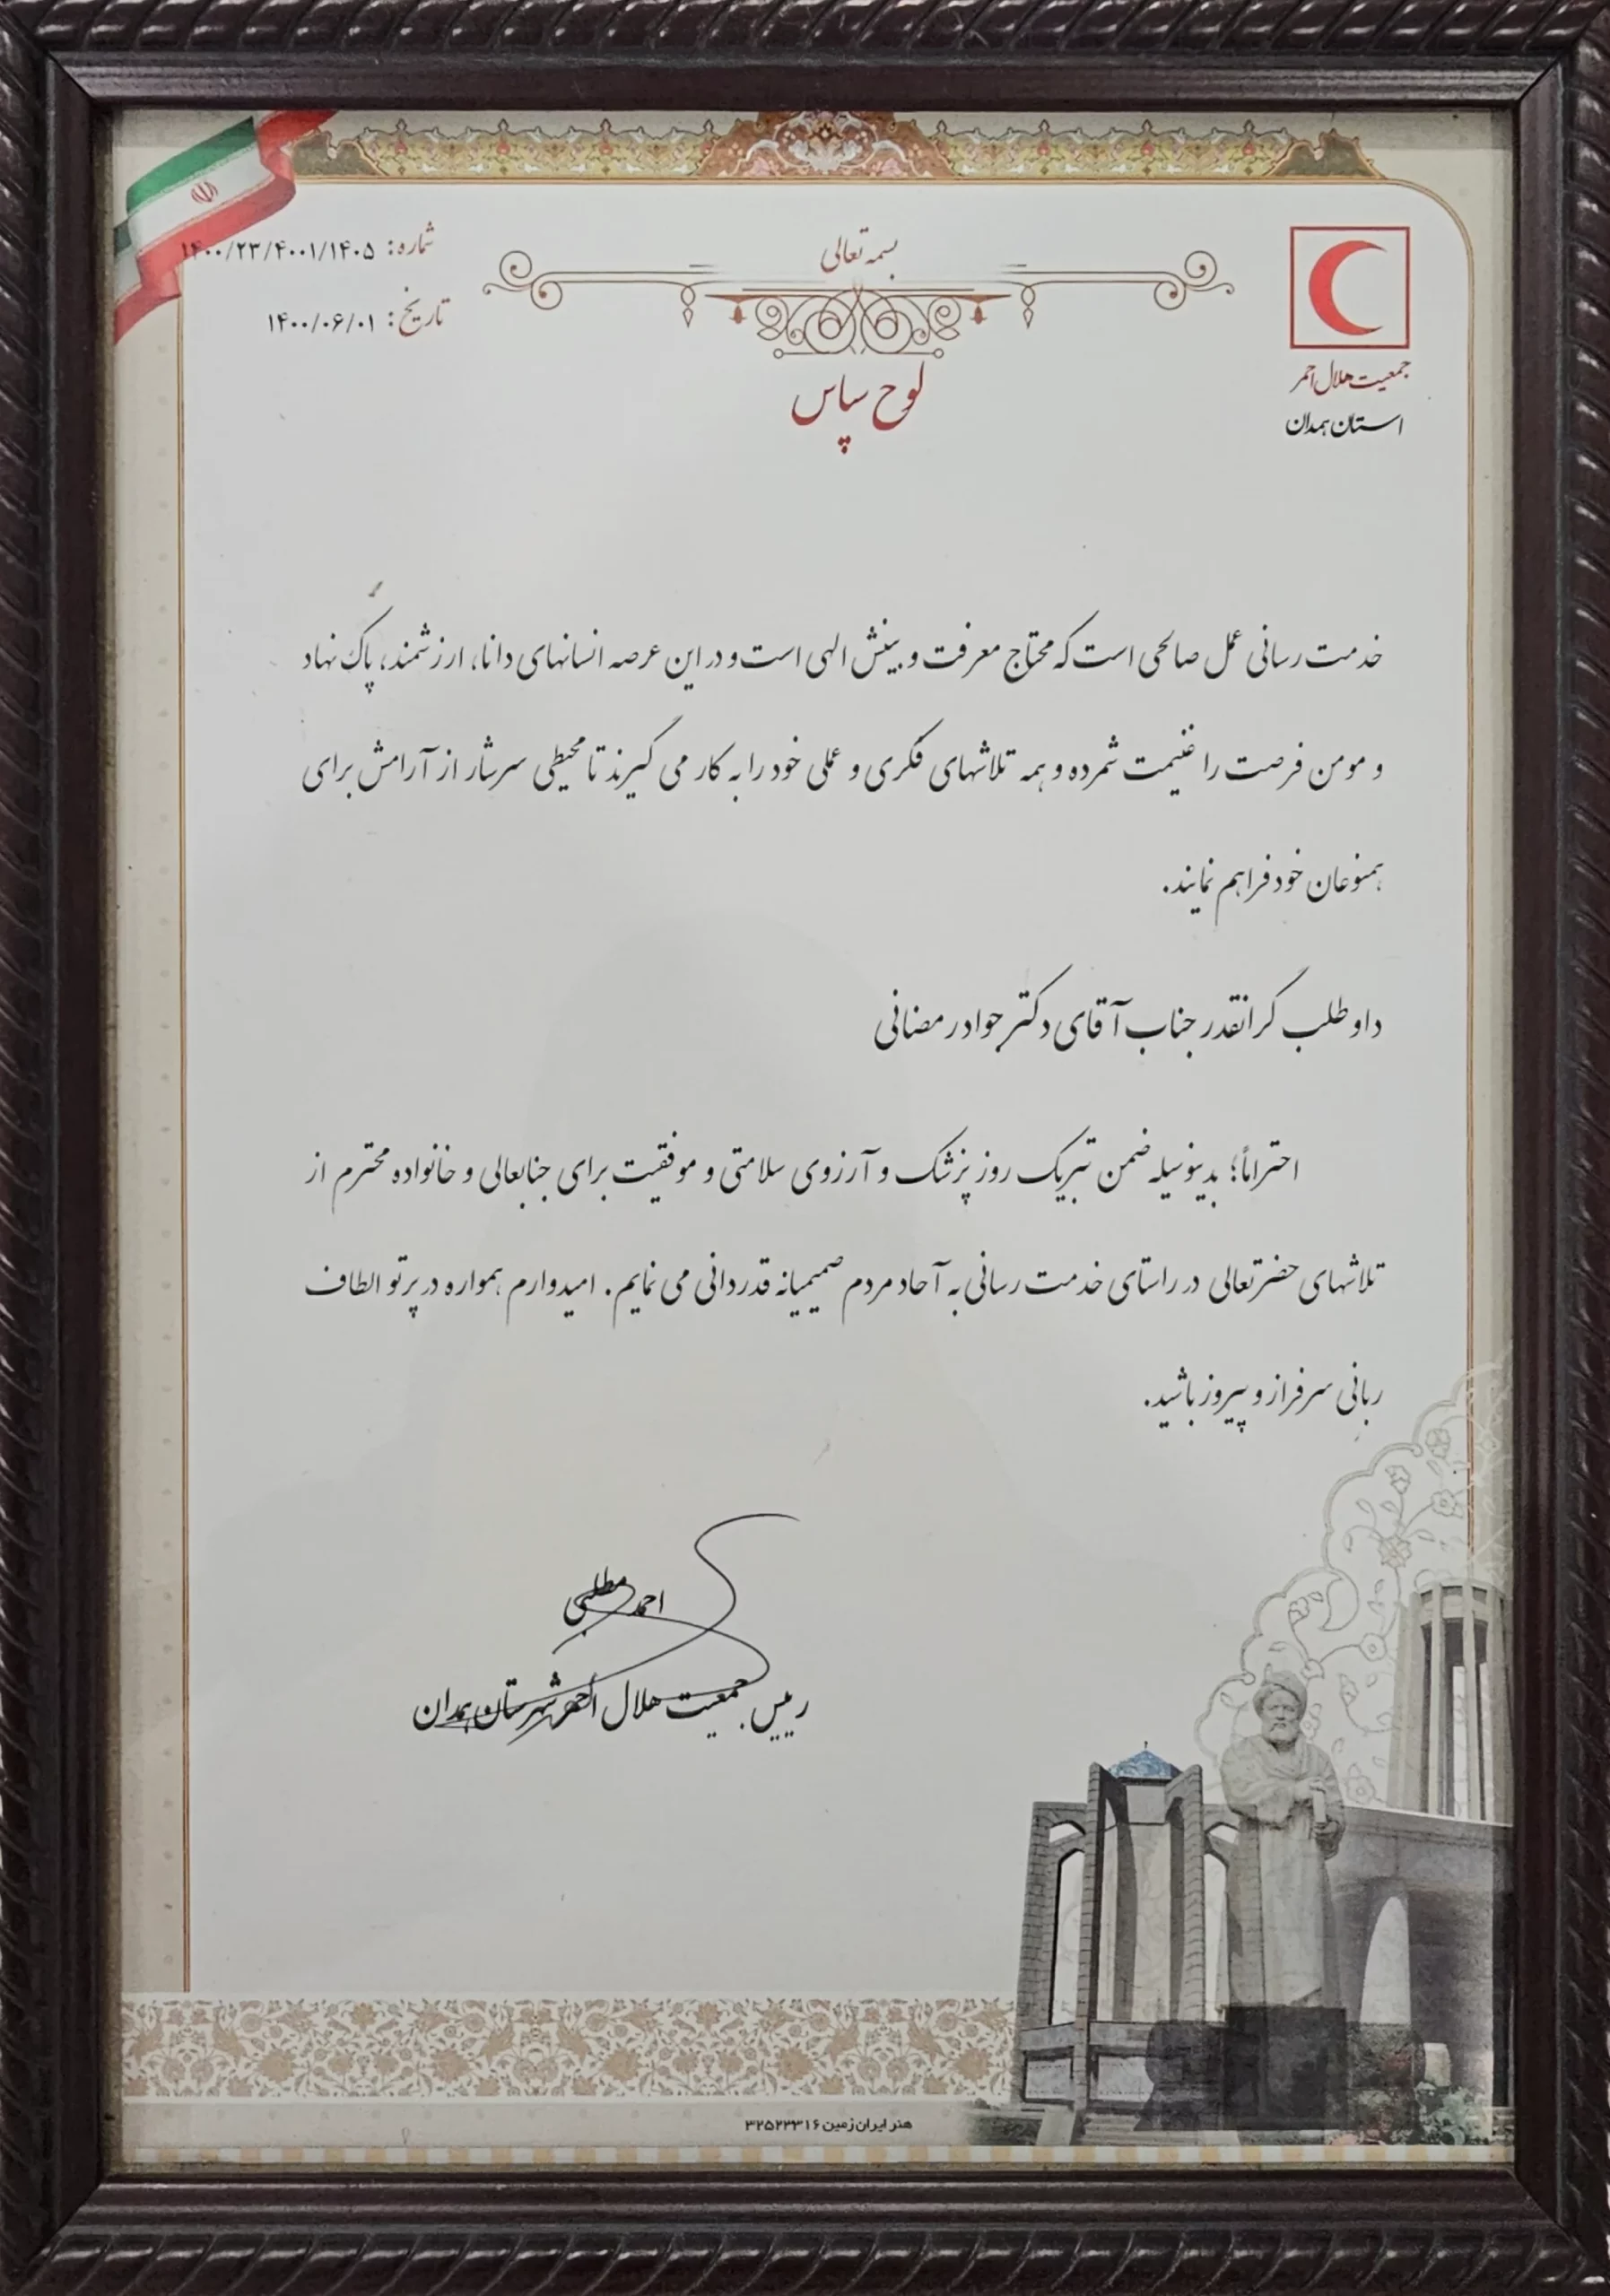 بسمه تعالی
شماره: ۱۴۰۰/۲۳/۴۰۰۱/۱۴۰۵
تاریخ: ۱۴۰۰/۰۶/۰۱
جمعیت هلال احمر
استان همدان
لوح سپاس
خدمت رسانی عمل صالحی است که محتاج معرفت و بینش الهی است و در این عرصه انسانهای دانا، ارزشمند، پاک نهاد
و مومن فرصت را غنیمت شمرده و همه تلاشهای فکری و عملی خود را به کار می گیرند تا محیطی سرشار از آرامش برای
همنوعان خود فراهم نمایند.
داوطلب گرانقدر جناب آقای دکتر جواد رمضانی
احتراماً؛ بدینوسیله ضمن تبریک روز پزشک و آرزوی سلامتی و موفقیت برای جنابعالی و خانواده محترم از
تلاشهای حضرتعالی در راستای خدمت رسانی به آحاد مردم صمیمیانه قدردانی می نمایم. امیدوارم همواره در پرتو الطاف
ربانی سرفراز و پیروز باشید.
احمد مطلبی
رییس جمعیت هلال احمر شهرستان همدان
هنر ایران زمین ۳۲۵۲۳۳۱۶